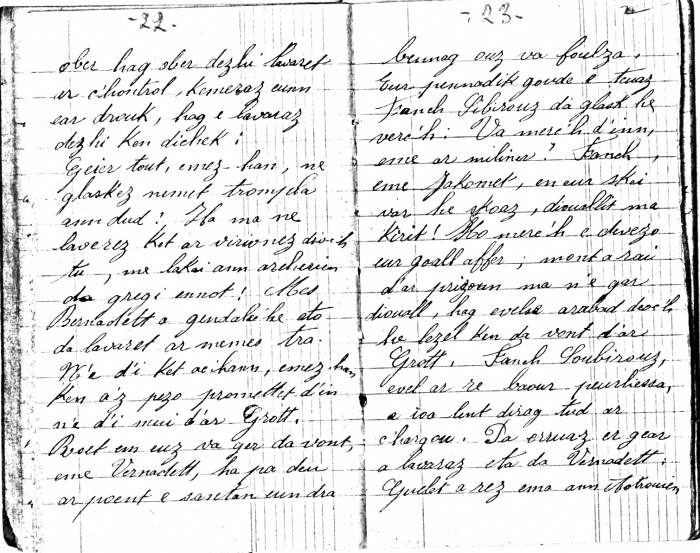 -22-
ober hag ober dezhi lavaret
ar c'hontrol, kemeraz eunn
ear drouk, hag e lavaraz
dezhi ken dichek :
Geier tout, emez-han, ne
glaskez nemet trompla
ann dud ! Ha ma ne
laverez ket ar virionez diouc'h
tu, me lakai ann archerien
da gregi ennot ! Mes
Bernadett a gendalc'he ato
da lavaret ar memes tra.
N'e d'i ket ac'hann, emez han
ken a'z pezo promettet d'in
n'e d'i mui d'ar Grott.
Roet em euz va ger da vont,
eme Vernadett, ha pa deu
ar poent e santan eun dra
-23-
bennag ouz va foulza.
Eur pennadik gouda e teuaz
Fanch Soubirouz da glask he
verc'h : Va merc'h d'inn,
eme ar miliner ? Fanch,
eme Jakomet, en eur skei
var he skoaz, diouallit ma
kirit ! Ho merc'h e devezo
eur goall affer ; mont a raio
d'ar prizoun ma n'e gar
diouall, hag evelse arabad deoc'h
he lezel ken da vont d'ar
Grott. Fanch Soubirouz,
evel ar re baour peurliessa,
e ioa lent dirag tud ar
c'hargou. Da erruaz er gear
a lavaraz eta da Vernadett :
Guelet a rez ema ann Aotrounien